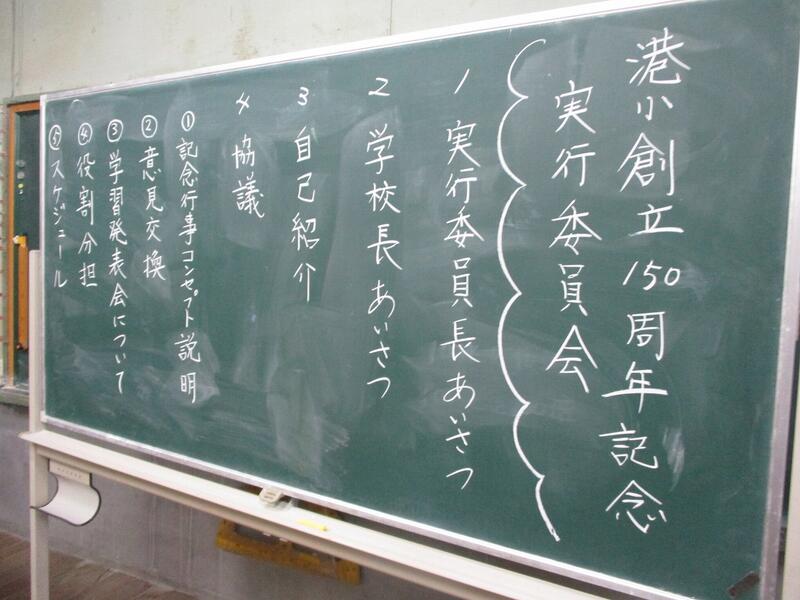 港小創立150周年記念
実行委員会
1 実行委員長あいさつ
2 学校長あいさつ
3 自己紹介
4 協議
①記念行事コンセプト説明
②意見交換
③学習発表会について
④役割分担
⑤スケジュール